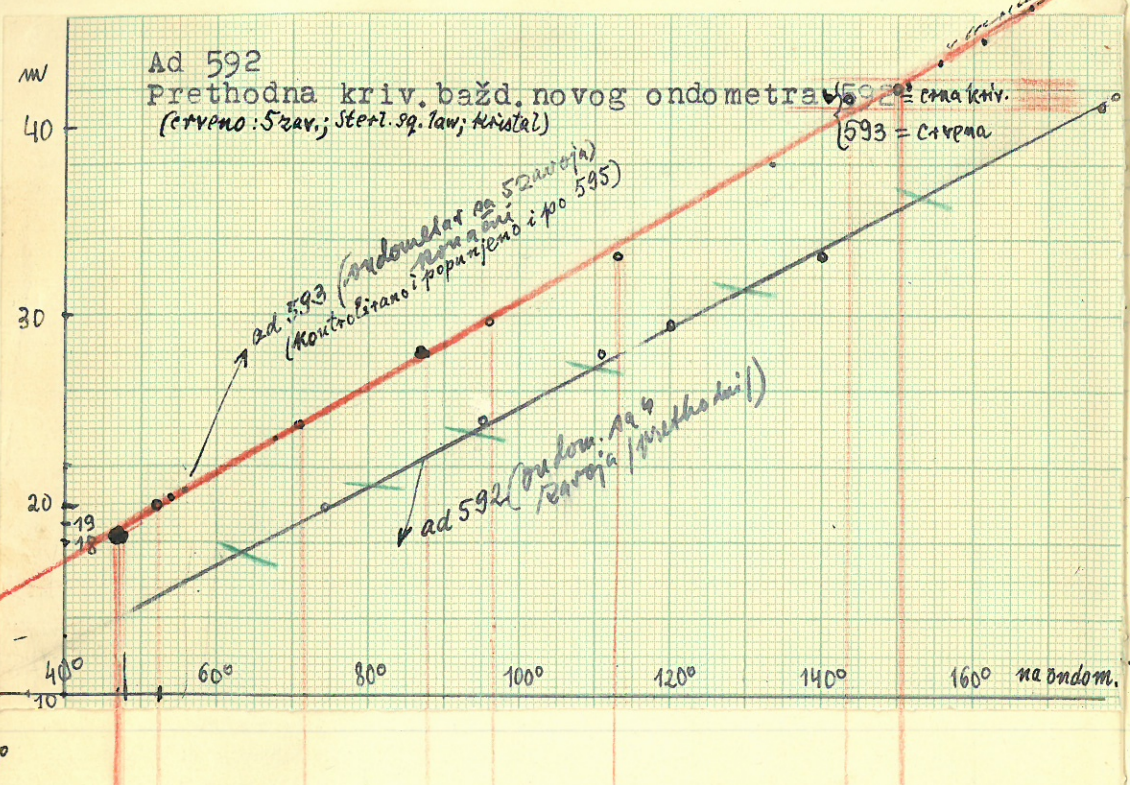 m
Ad 592
Prethodna kriv.bažd.novog ondometra {592 = crna kriv.
(crveno: 5 zav.; Sterl. sq. law; Kristal)
{593 = crvena
40
ad 593 (ondometar sa 5 zavoja)
konačni
(Kontrolirano i popunjeno i po 595)
30
ad 592 (ondom. sa 4
zavoja (prethodni))
20
19
18
40° 60° 80° 100° 120° 140° 160° na ondom.
10